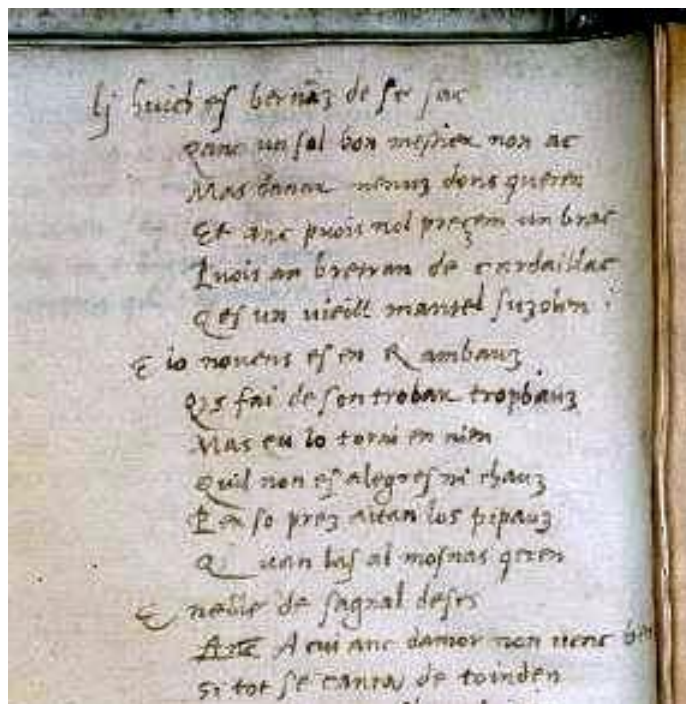 Lj huich es bernaz de se sac
Qanc un sol bon mestier non ac
Mas danar menuz dons queren
Et anc puois nol precem un brac
Puois an bretran de cardaillac
Qes un vieill mantel suzolen
E io novens es en Rambauz
Qis fai de son trobar trop bauz
Mas eu lo torni en nien
Quil non es alegres ni chauz
Per so prez aitan los pipauz
Quan las al mosnas qeren
E neble de sagnal deses
A cui anc damor non venc ben
Si tot se canta de coinden